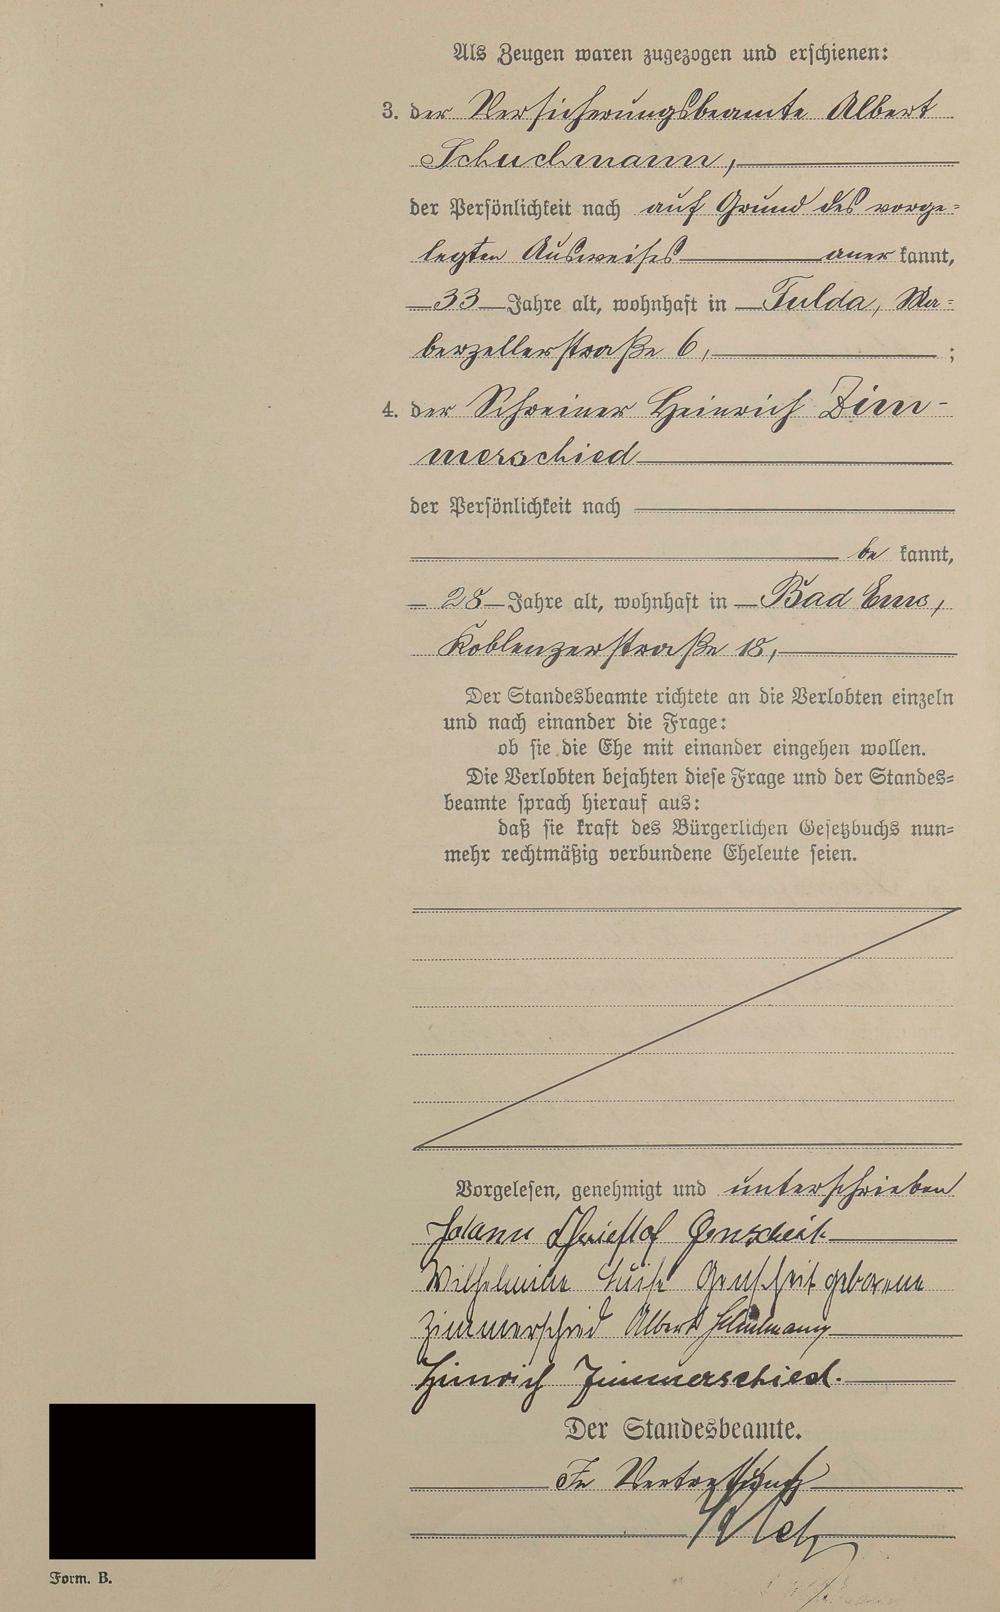 Als Zeugen waren zugezogen und erschienen:
3. der Versicherungsbeamte Albert
Schuchmann,
der Persönlichkeit nach auf Grund des vorge=
legten Ausweises aner kannt,
33 Jahre alt, wohnhaft in Fulda, Ma=
berzellerstraße 6, ;
4. der Schreiner Heinrich Zim-
merschied
der Persönlichkeit nach
be kannt,
28 Jahre alt, wohnhaft in Bad Ems,
Koblenzerstraße 18,
Der Standesbeamte richtete an die Verlobten einzeln
und nach einander die Frage:
ob sie die Ehe mit einander eingehen wollen.
Die Verlobten bejahten diese Frage und der Standes=
beamte sprach hierauf aus:
daß sie kraft des Bürgerlichen Gesetzbuchs nun=
mehr rechtmäßig verbundene Eheleute seien.
Vorgelesen, genehmigt und unterschrieben
Johann Genscheit
Wilhelmine Luise Genscheit geborene
Zimmerschied Albert Schuchmann
Heinrich Zimmerschied.
Der Standesbeamte.
In Vertretung
Form. B.